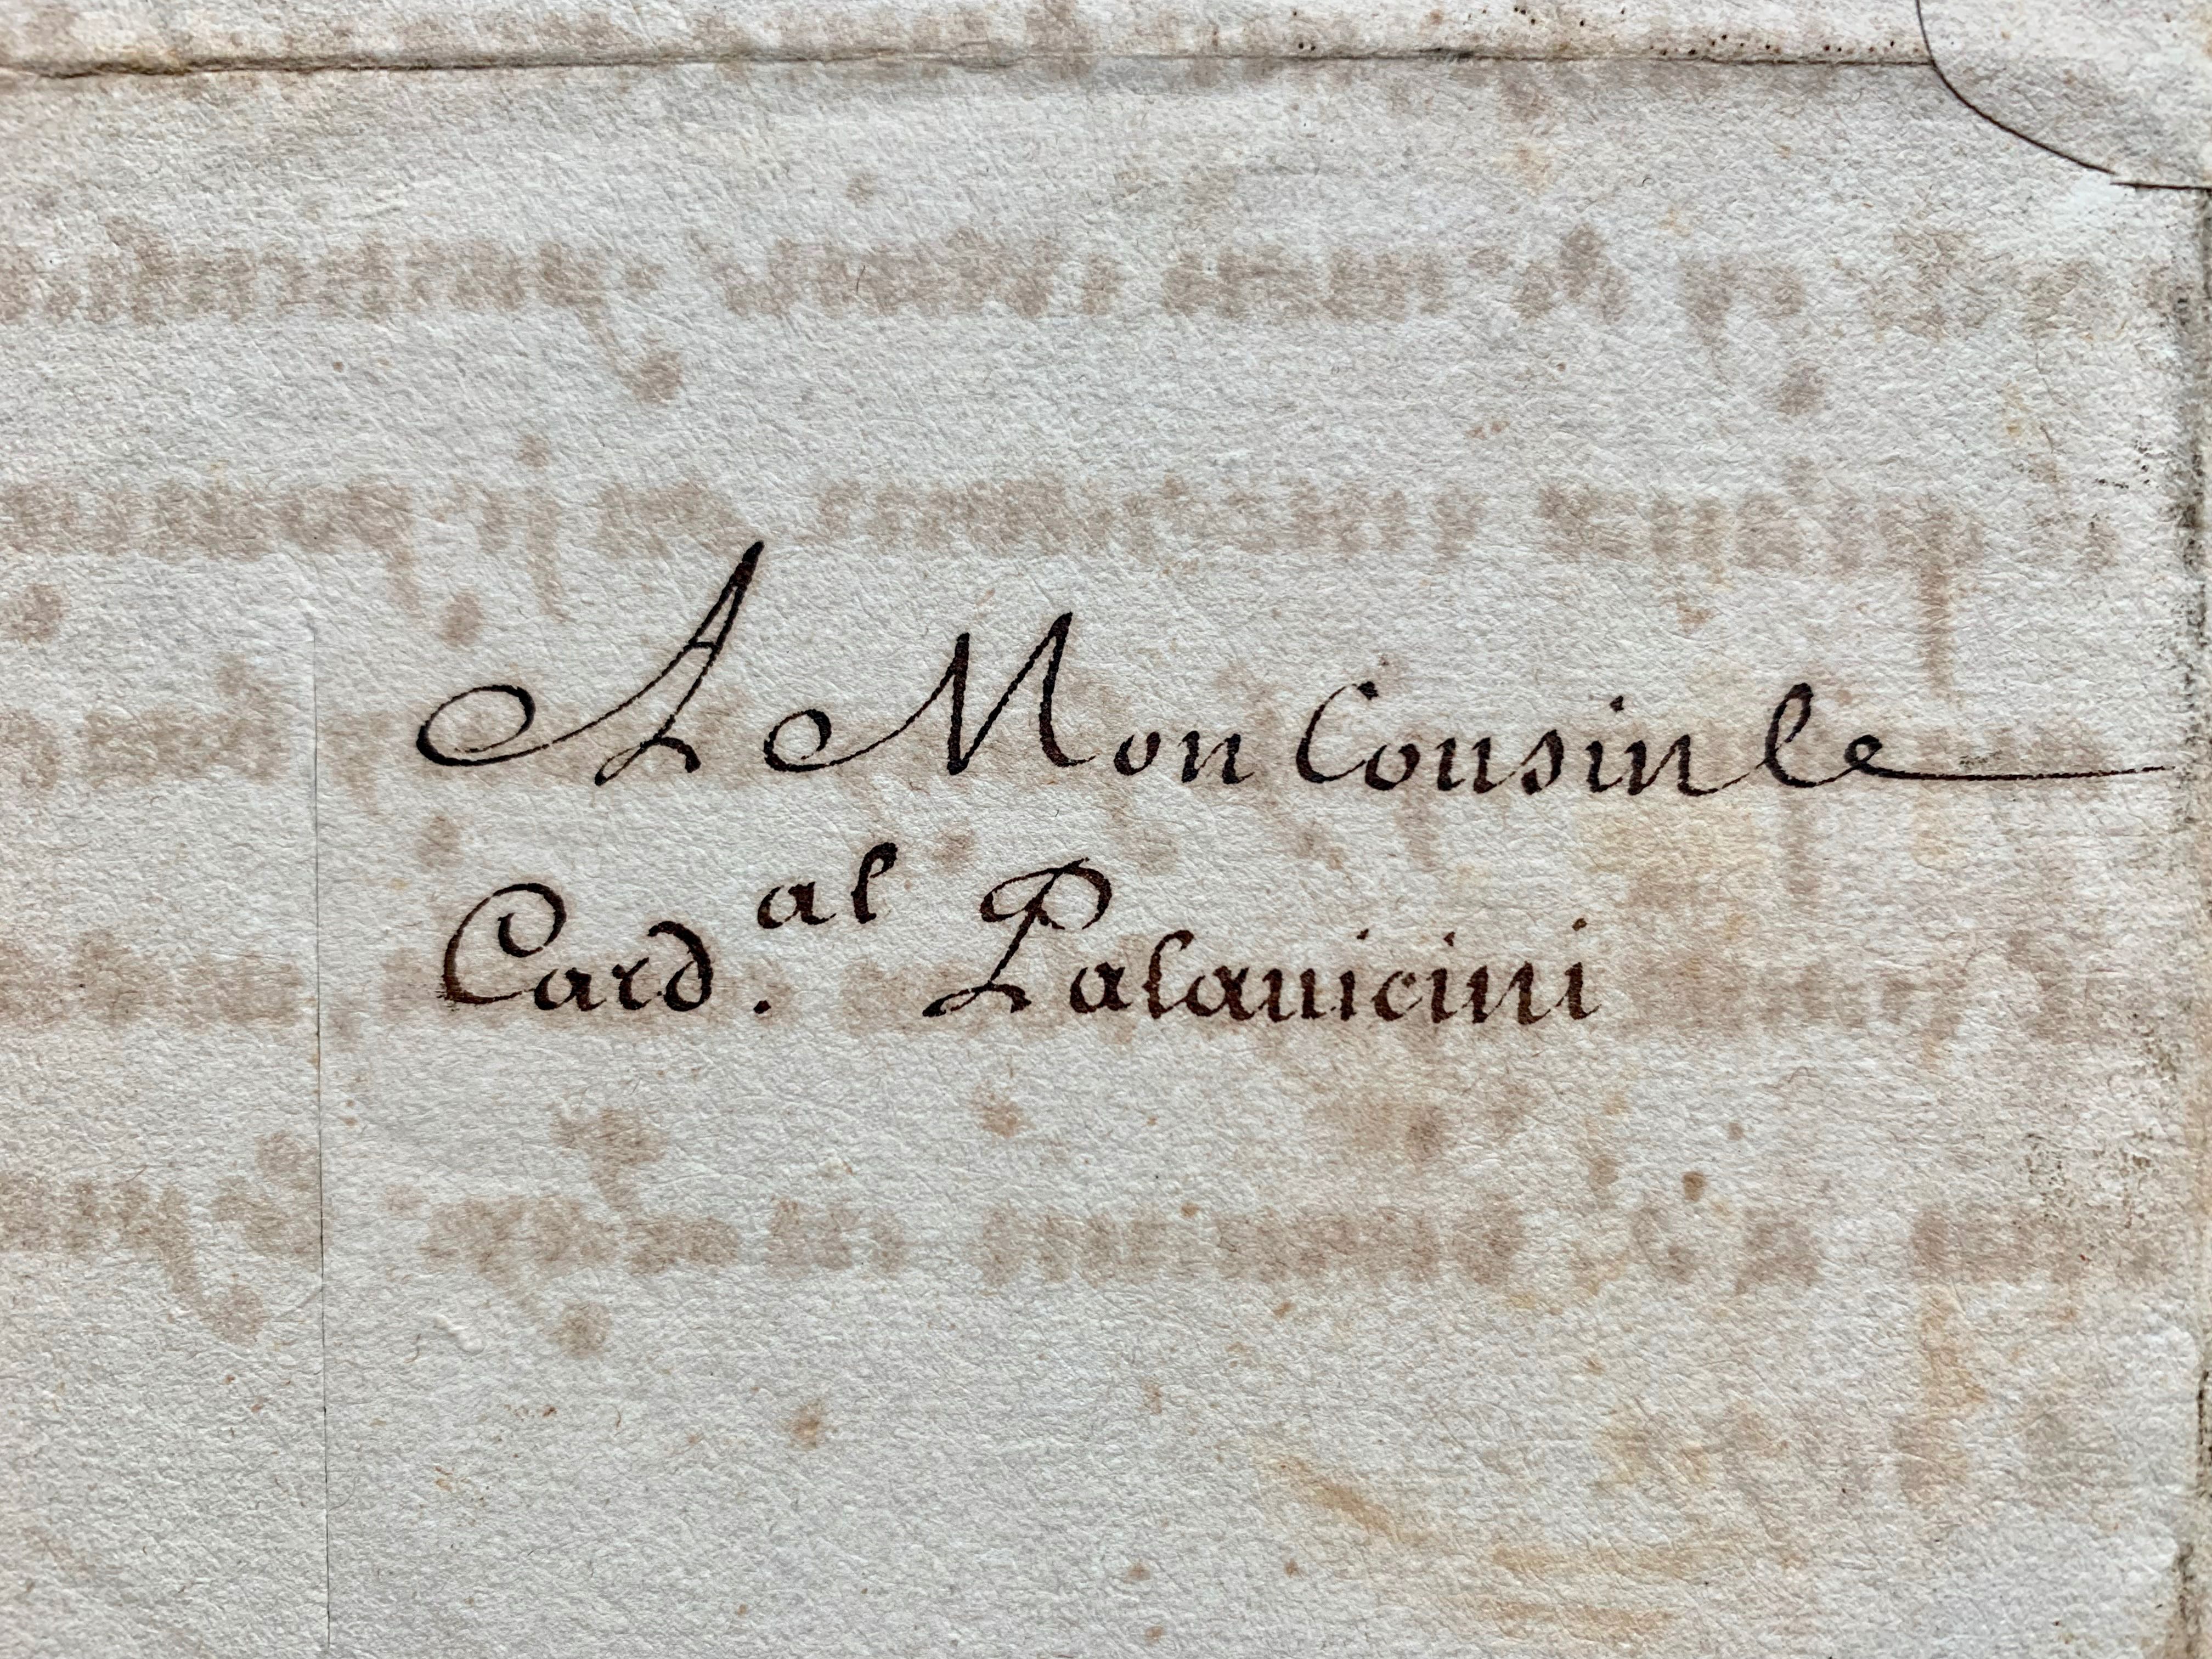 A Mon Cousin le
Card.al Palauicini